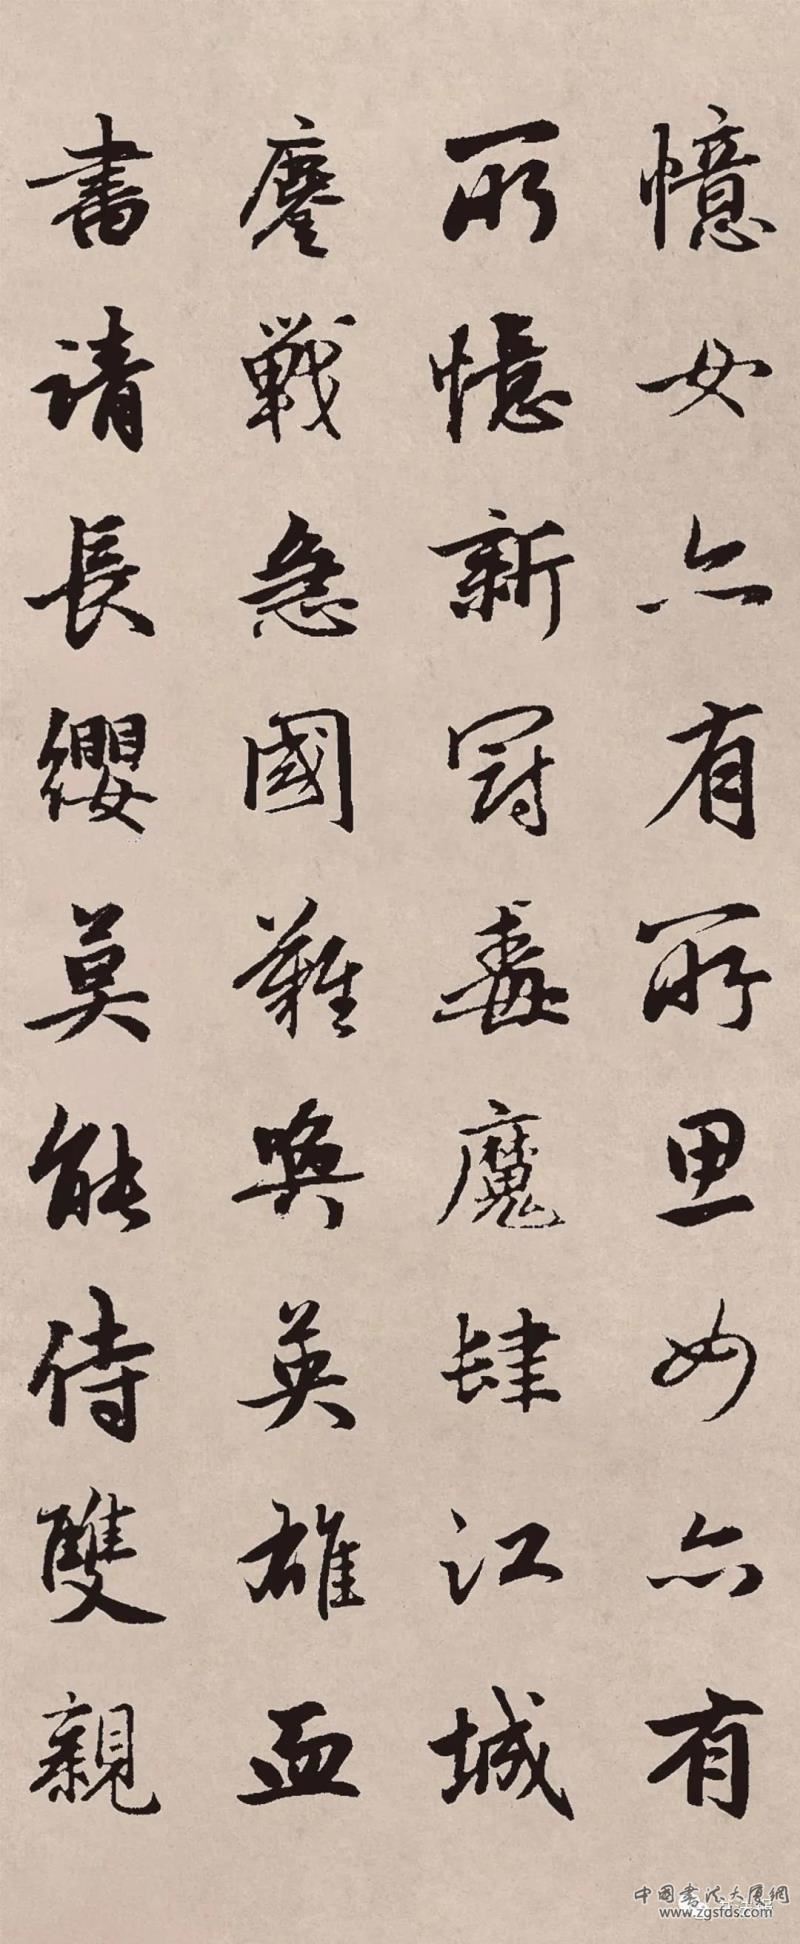 憶女亦有所思女亦有
所憶新冠毒魔肆江城
鏖戰急國難喚英雄血
書请長纓莫能侍雙親
中國書法大厦網
www.zgsfds.com